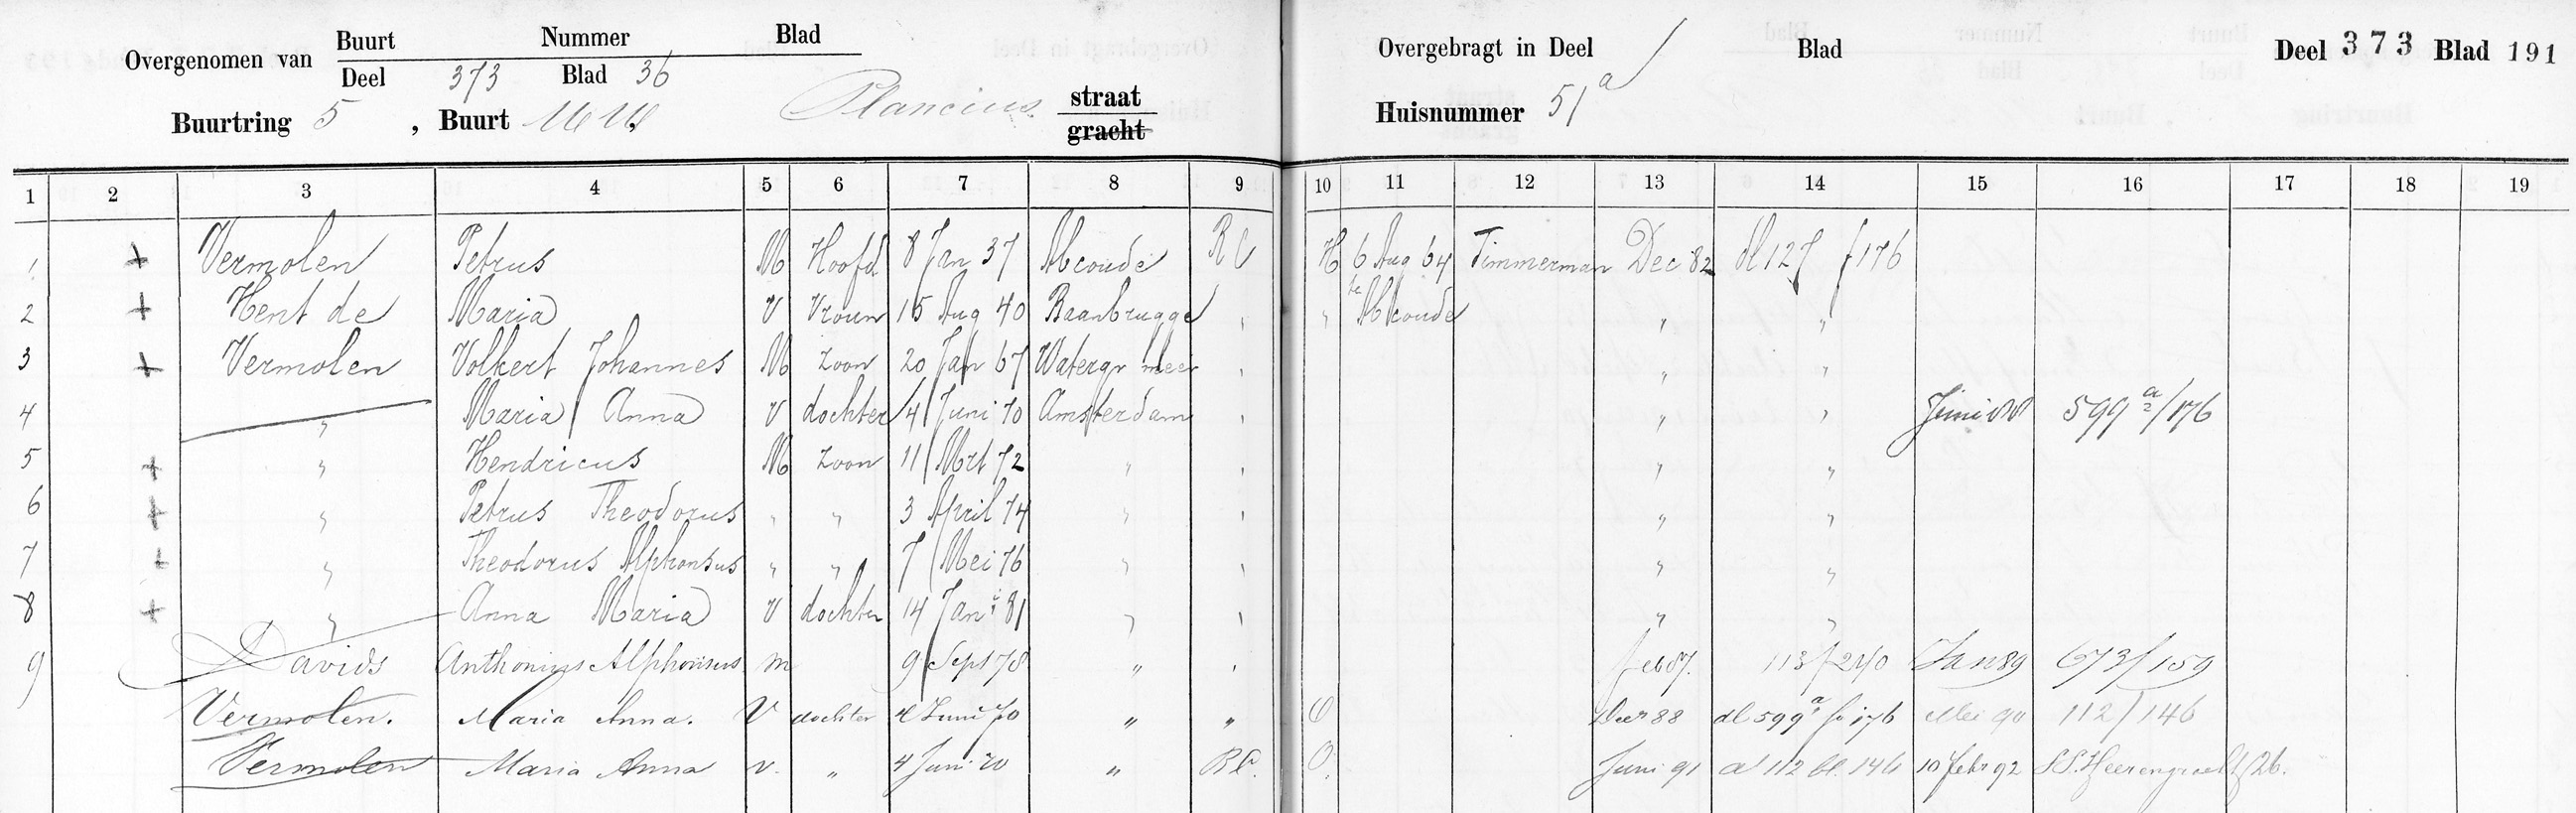 Overgenomen van Buurt Nummer Blad
Deel 373 Blad 36
Buurtring 5, Buurt Plancius straat
gracht
Overgebragt in Deel / Blad
Huisnummer 51a
Deel 373 Blad 191
1 2 3 4 5 6 7 8 9 10 11 12 13 14 15 16 17 18 19
1 + Vermolen Petrus M Hoofd 8 Jan 37 Abcoude RC H 6 Aug 64 Timmerman Dec 82 dl 127 f 176
2 + Hent de Maria V Vrouw 15 Aug 40 Baanbrugge " " te Abcoude " "
3 + Vermolen Volkert Johannes M Zoon 20 Jan 67 Watergr meer " " "
4 " Maria Anna V dochter 4 Juni 70 Amsterdam " " " Juni 88 599 a/2 / 176
5 + " Hendricus M Zoon 11 Mrt 72 " " " "
6 + " Petrus Theodorus " " 3 April 74 " " " "
7 + " Theodorus Alphonsus " " 7 Mei 76 " " " "
8 + " Anna Maria V dochter 14 Jani 81 " " " "
9 Davids Anthonius Alphonsus m 9 Sept 78 " " feb 87. 113/240 Jan 89 673/159
Vermolen. Maria Anna. V dochter 4 Juni 70 " " O Decr 88 dl 599a fo 176 Mei 90 112/146
Vermolen Maria Anna v. " 4 Juni 70 " RC. O. Juni 91 dl 112 bl. 146 10 febr 92 Heerengracht 26.